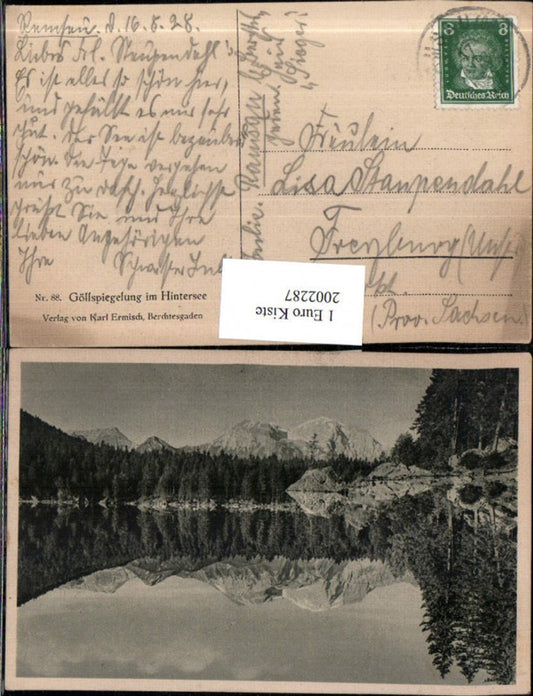 Ramsau. d. 16.8.28.
Liebes Frl. Staupendahl!
Es ist alles so schön hier,
und gefällt es mir sehr
gut. Der See ist bezaubernd
schön. Die Tage vergehen
nur zu rasch. Herzlichst
grüßt Sie und Ihre
lieben Angehörigen
Ihre Schwester
Nr. 88. Göllspiegelung im Hintersee
Verlag von Karl Ermisch, Berchtesgaden
Ramsau b/
8 8
Deutsches Reich
Fräulein
Lisa Staupendahl
Freyburg (Unstr.)
(Prov. Sachsen.)
1 Euro Kiste
2002287